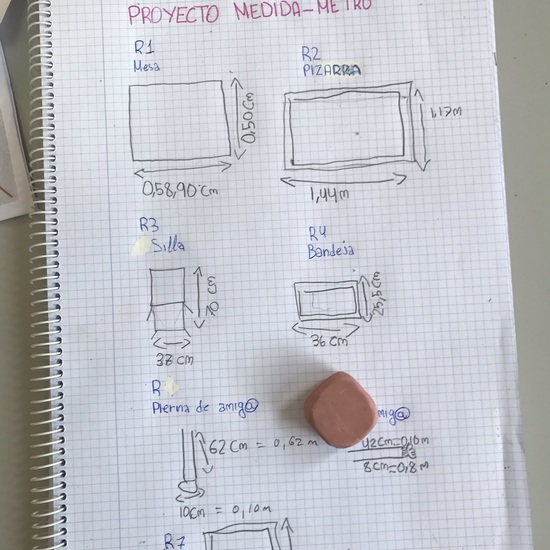 PROYECTO MEDIDA-METRO
R1
Mesa
0,50 cm
0,58,90 cm
R2
PIZARRA
1,17m
1,44m
R3
Silla
70 cm
38 cm
R4
Bandeja
25,5 cm
36 cm
R
Pierna de amig@
62 cm = 0,62 m
10cm = 0,10 m
mig@
42cm=0,10m
8cm=0,8m
R7